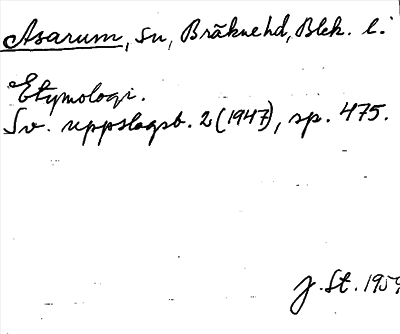 Asarum, sn, Bräknehd, Blek. l.
Etymologi.
Sv. uppslagsb. 2 (1947), sp. 475.
J. St. 1959